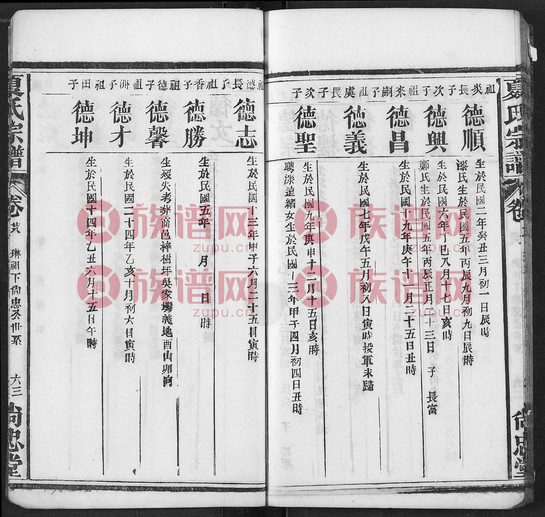 夏氏宗譜
卷
尚忠堂
祖炎長子
德順
生於民國二年癸丑三月初一日辰時
氏生於民國五年丙辰九月初九日辰時
次子
德興
生於民國六年丁巳八月十七日亥時
鄭氏生於民國五年丙辰正月二十三日 子 長富
祖來嗣子
德昌
生於民國十九年庚午十一月二十五日丑時
祖慶長子
德義
生於民國七年戊午五月初八日寅時授軍未歸
次子
德聖
生於民國九年庚申十二月十五日亥時
聘深並緒女生於民國十三年甲子四月初四日丑時
祖德長子
德志
生於民國十三年甲子六月二十五日寅時
祖香子
德勝
生於民國五年 月 日 時
祖德子
德馨
生歿失考葬高邑梓樹坪吳家塲義地酉山卯向
祖洲子
德才
生於民國二十四年乙亥十月初六日寅時
祖田子
德坤
生於民國十四年乙丑六月十五日午時
夏氏宗譜
卷
琳祖下尚忠公世系
六三
尚忠堂
族谱网
zupu.cn
族谱网
zupu.cn
族谱网
zupu.cn
族谱网
zupu.cn